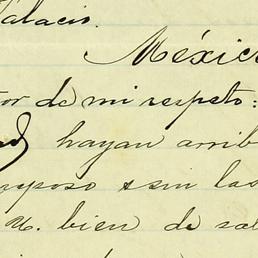 Palacio.
México
tor de mi respeto:
hayan arrib
esposo sin las
N. bien de sal